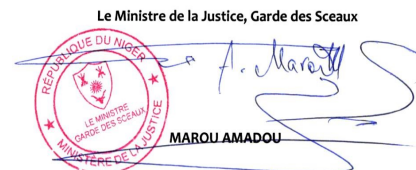 Le Ministre de la Justice, Garde des Sceaux
RÉPUBLIQUE DU NIGER
LE MINISTRE
GARDE DES SCEAUX
MINISTÈRE DE LA JUSTICE
A. Marou
MAROU AMADOU